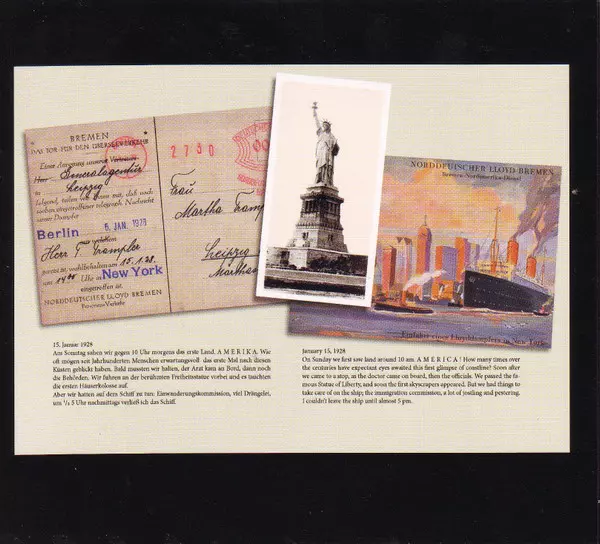 BREMEN
DAS TOR FÜR DEN ÜBERSEEVERKEHR
Einer Anzeige unserer Vertreter
Herr Generalagentur
in Leipzig
folgend, teilen wir Ihnen mit, daß nach
soeben eingetroffener telegraph. Nachricht
unser Dampfer
Berlin 5. JAN. 1928
mit
Herr F. Trampler
gereist, wohlbehalten am 15.1.28.
um 14°° Uhr in New York
eingetroffen ist.
NORDDEUTSCHER LLOYD BREMEN
2730
Frau
Martha Trampler
Leipzig
Martha
NORDDEUTSCHER LLOYD BREMEN
Bremen-Nordamerika-Dienst
Einfahrt eines Lloyddampfers in New York
15. Januar 1928
Am Sonntag sahen wir gegen 10 Uhr morgens das erste Land. A M E R I K A. Wie
oft mögen seit Jahrhunderten Menschen erwartungsvoll das erste Mal nach diesen
Küsten geblickt haben. Bald mussten wir halten, der Arzt kam an Bord, dann noch
die Behörden. Wir fuhren an der berühmten Freiheitsstatue vorbei und es tauchten
die ersten Häuserkolosse auf.
Aber wir hatten auf dem Schiff zu tun: Einwanderungskommission, viel Drängelei,
um ½ 5 Uhr nachmittags verließ ich das Schiff.
January 15, 1928
On Sunday we first saw land around 10 am. A M E R I C A ! How many times over
the centuries have expectant eyes awaited this first glimpse of coastline! Soon after
we came to a stop, as the doctor came on board, then the officials. We passed the fa-
mous Statue of Liberty, and soon the first skyscrapers appeared. But we had things
to take care of on the ship; the immigration commission, a lot of jostling and pestering.
I couldn't leave the ship until almost 5 pm.